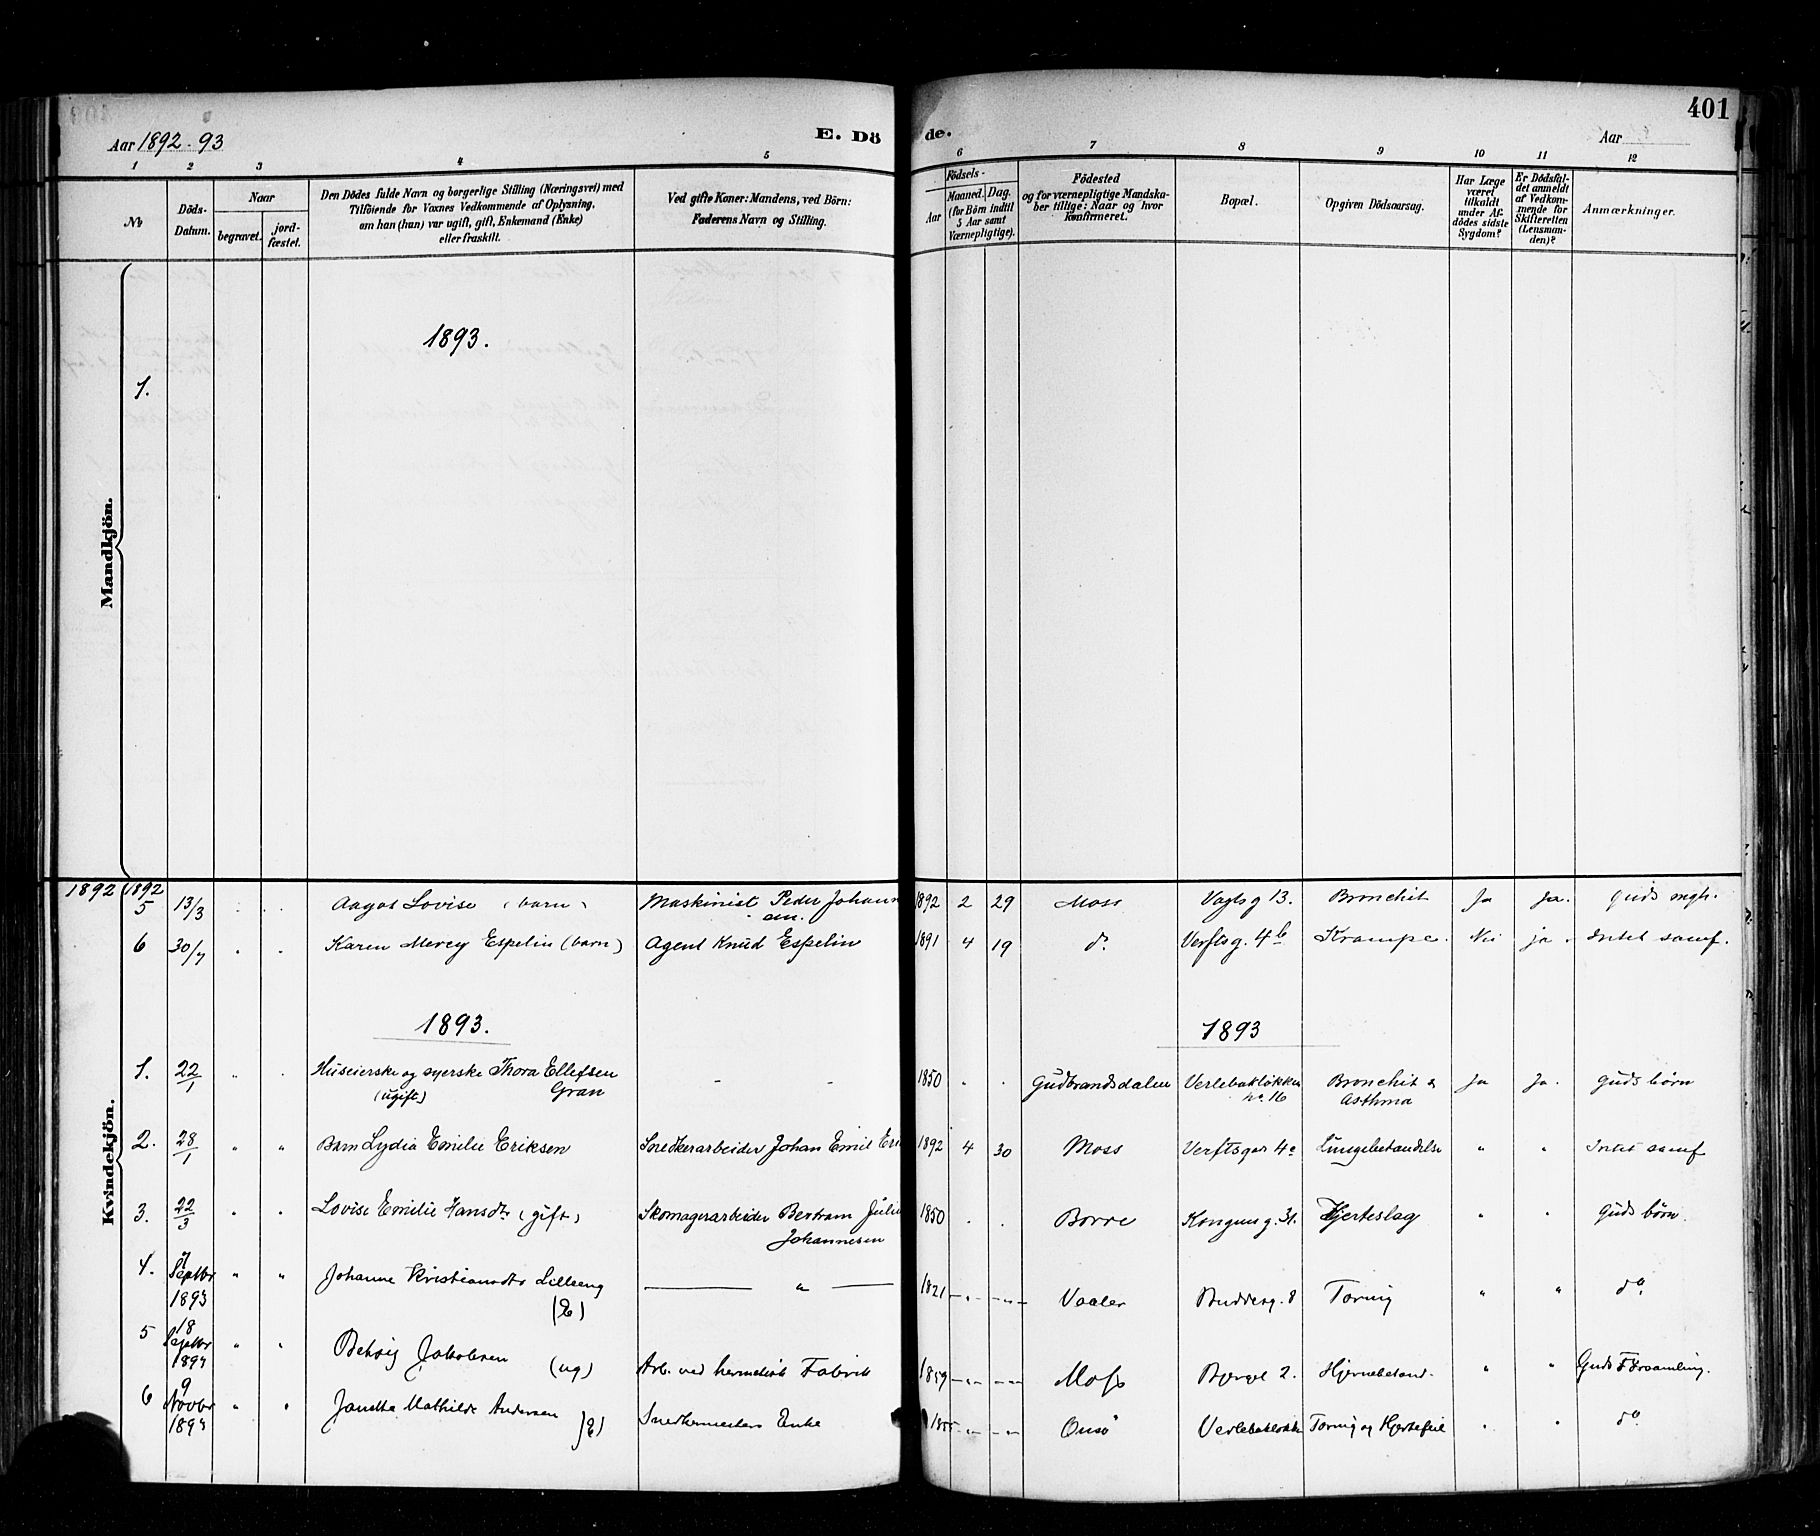 401
Aar 1892-93
E. Dö
de.
Aar
1 2 3 4 5 6 7 8 9 10 11 12
№
Döds-
Datum.
Naar
begravet.
jord-
fæstet.
Den Dödes fulde Navn og borgerlige Stilling (Næringsvei) med
Tilföiende for Voxnes Vedkommende af Oplysning,
om han (hun) var ugift, gift, Enkemand (Enke)
eller fraskilt.
Ved gifte Koner: Mandens, ved Börn:
Faderens Navn og Stilling.
Födsels-
Aar
Maaned. Dag.
(for Börn indtil
5 Aar samt
Værnepligtige).
Födested
og for værnepligtige Mandska-
ber tillige: Naar og hvor
konfirmeret.
Bopæl.
Opgiven Dödsaarsag.
Har Læge
været
tilkaldt
under Af-
dödes sidste
Sygdom?
Er Dödsfal-
det anmeldt
af Vedkom-
mende for
Skifteretten
(Lensman-
den)?
Anmærkninger.
Mandkjön.
1893.
1.
Kvindekjön.
1892 1892
5 13/3 Aagot Lovise (barn) Maskinist Peder Johann 1892 2 29 Moss Vogtsg 13. Bronchit Ja Ja. Guds mgh.
sen.
6 30/7 Karen Mercy Espelin (barn) Agent Knud Espelin 1891 4 19 do. Verftsg. 4b Krampe. Nei ja. Intet samf.
1893. 1893
1. 22/1 Huseierske og syerske Thora Ellefsen - - 1850 Gudbrandsdalen Verlebakløkken Bronchit & Ja Ja. Guds børn
(ugift) Gran no. 16 Asthma
2. 28/1 " " Barn Lydia Emilie Eriksen Snedkerarbeider Johan Emil Eri 1892 4 30 Moss Verftsga 4c Lungebetændelse " " Intet samf
3. 22/3 " " Lovise Emilie Hansdtr (gift) Skomagerarbeider Bertram Juliu 1850 Borre Kongensg. 31. Hjerteslag " " Guds børn.
Johannesen
4. 7 Septbr 1893 " " Johanne Kristiansdtr Lilleeng — " — 1821 Vaaler Buddesg. 8 Tæring " " do.
(E)
5 18 Septbr 1893 " " Betsy Jakobsen (ug) Arb. ved hermetisk Fabrik 1859 Moss Bjerget 2. Hjernebetænd. " " Guds Forsamling.
6 9 Novbr 1893 " " Janette Mathilde Andersen (E) Snedkermesters Enke Onsø Verlebakløkke Tæring og Hjertefeil " " do.